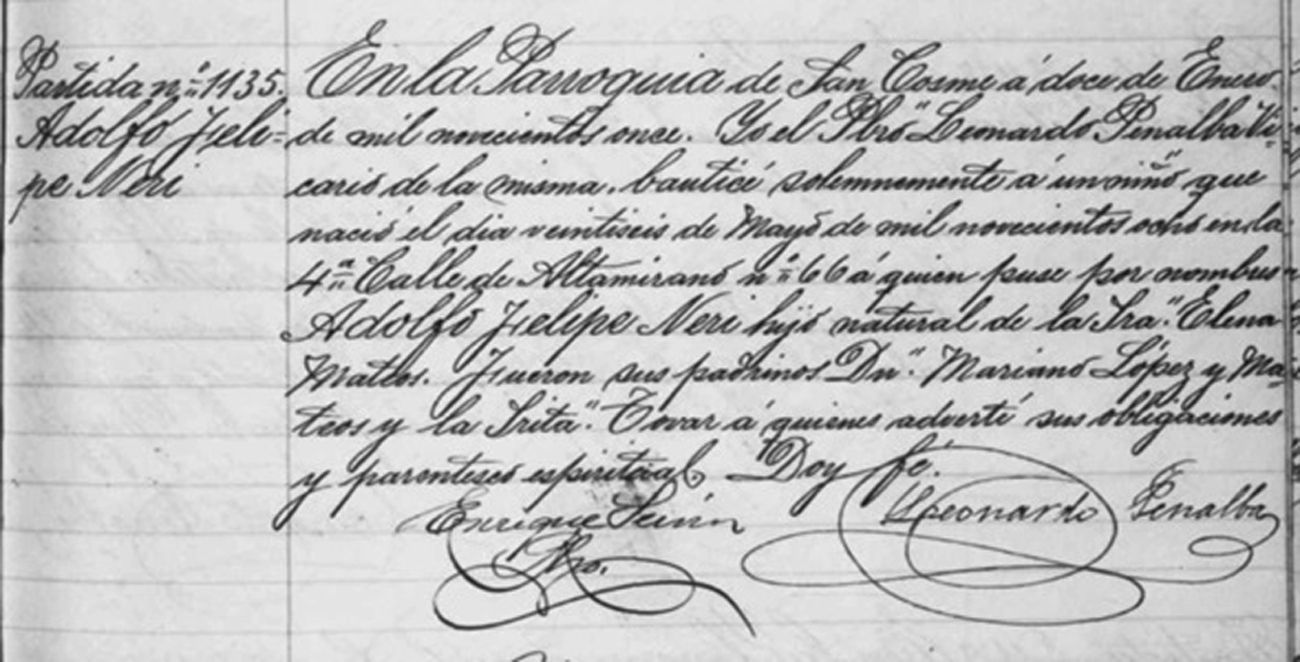 Partida nº 1135.
Adolfo Feli-
pe Neri
En la Parroquia de San Cosme á doce de Enero
de mil novecientos once. Yo el Pbrō Leonardo Penalba Vi-
cario de la misma, bauticé solemnemente á un niño que
nació el dia veintiseis de Mayo de mil novecientos ocho en la
4ª Calle de Altamirano nº 66 á quien puse por nombre
Adolfo Felipe Neri hijo natural de la Sra. Elena
Mateos. Fueron sus padrinos Dn. Mariano López y Ma-
teos y la Srita. Tovar á quienes advertí sus obligaciones
y parentesco espiritual Doy fé.
Enrique Leonardo Penalba
Pbro.